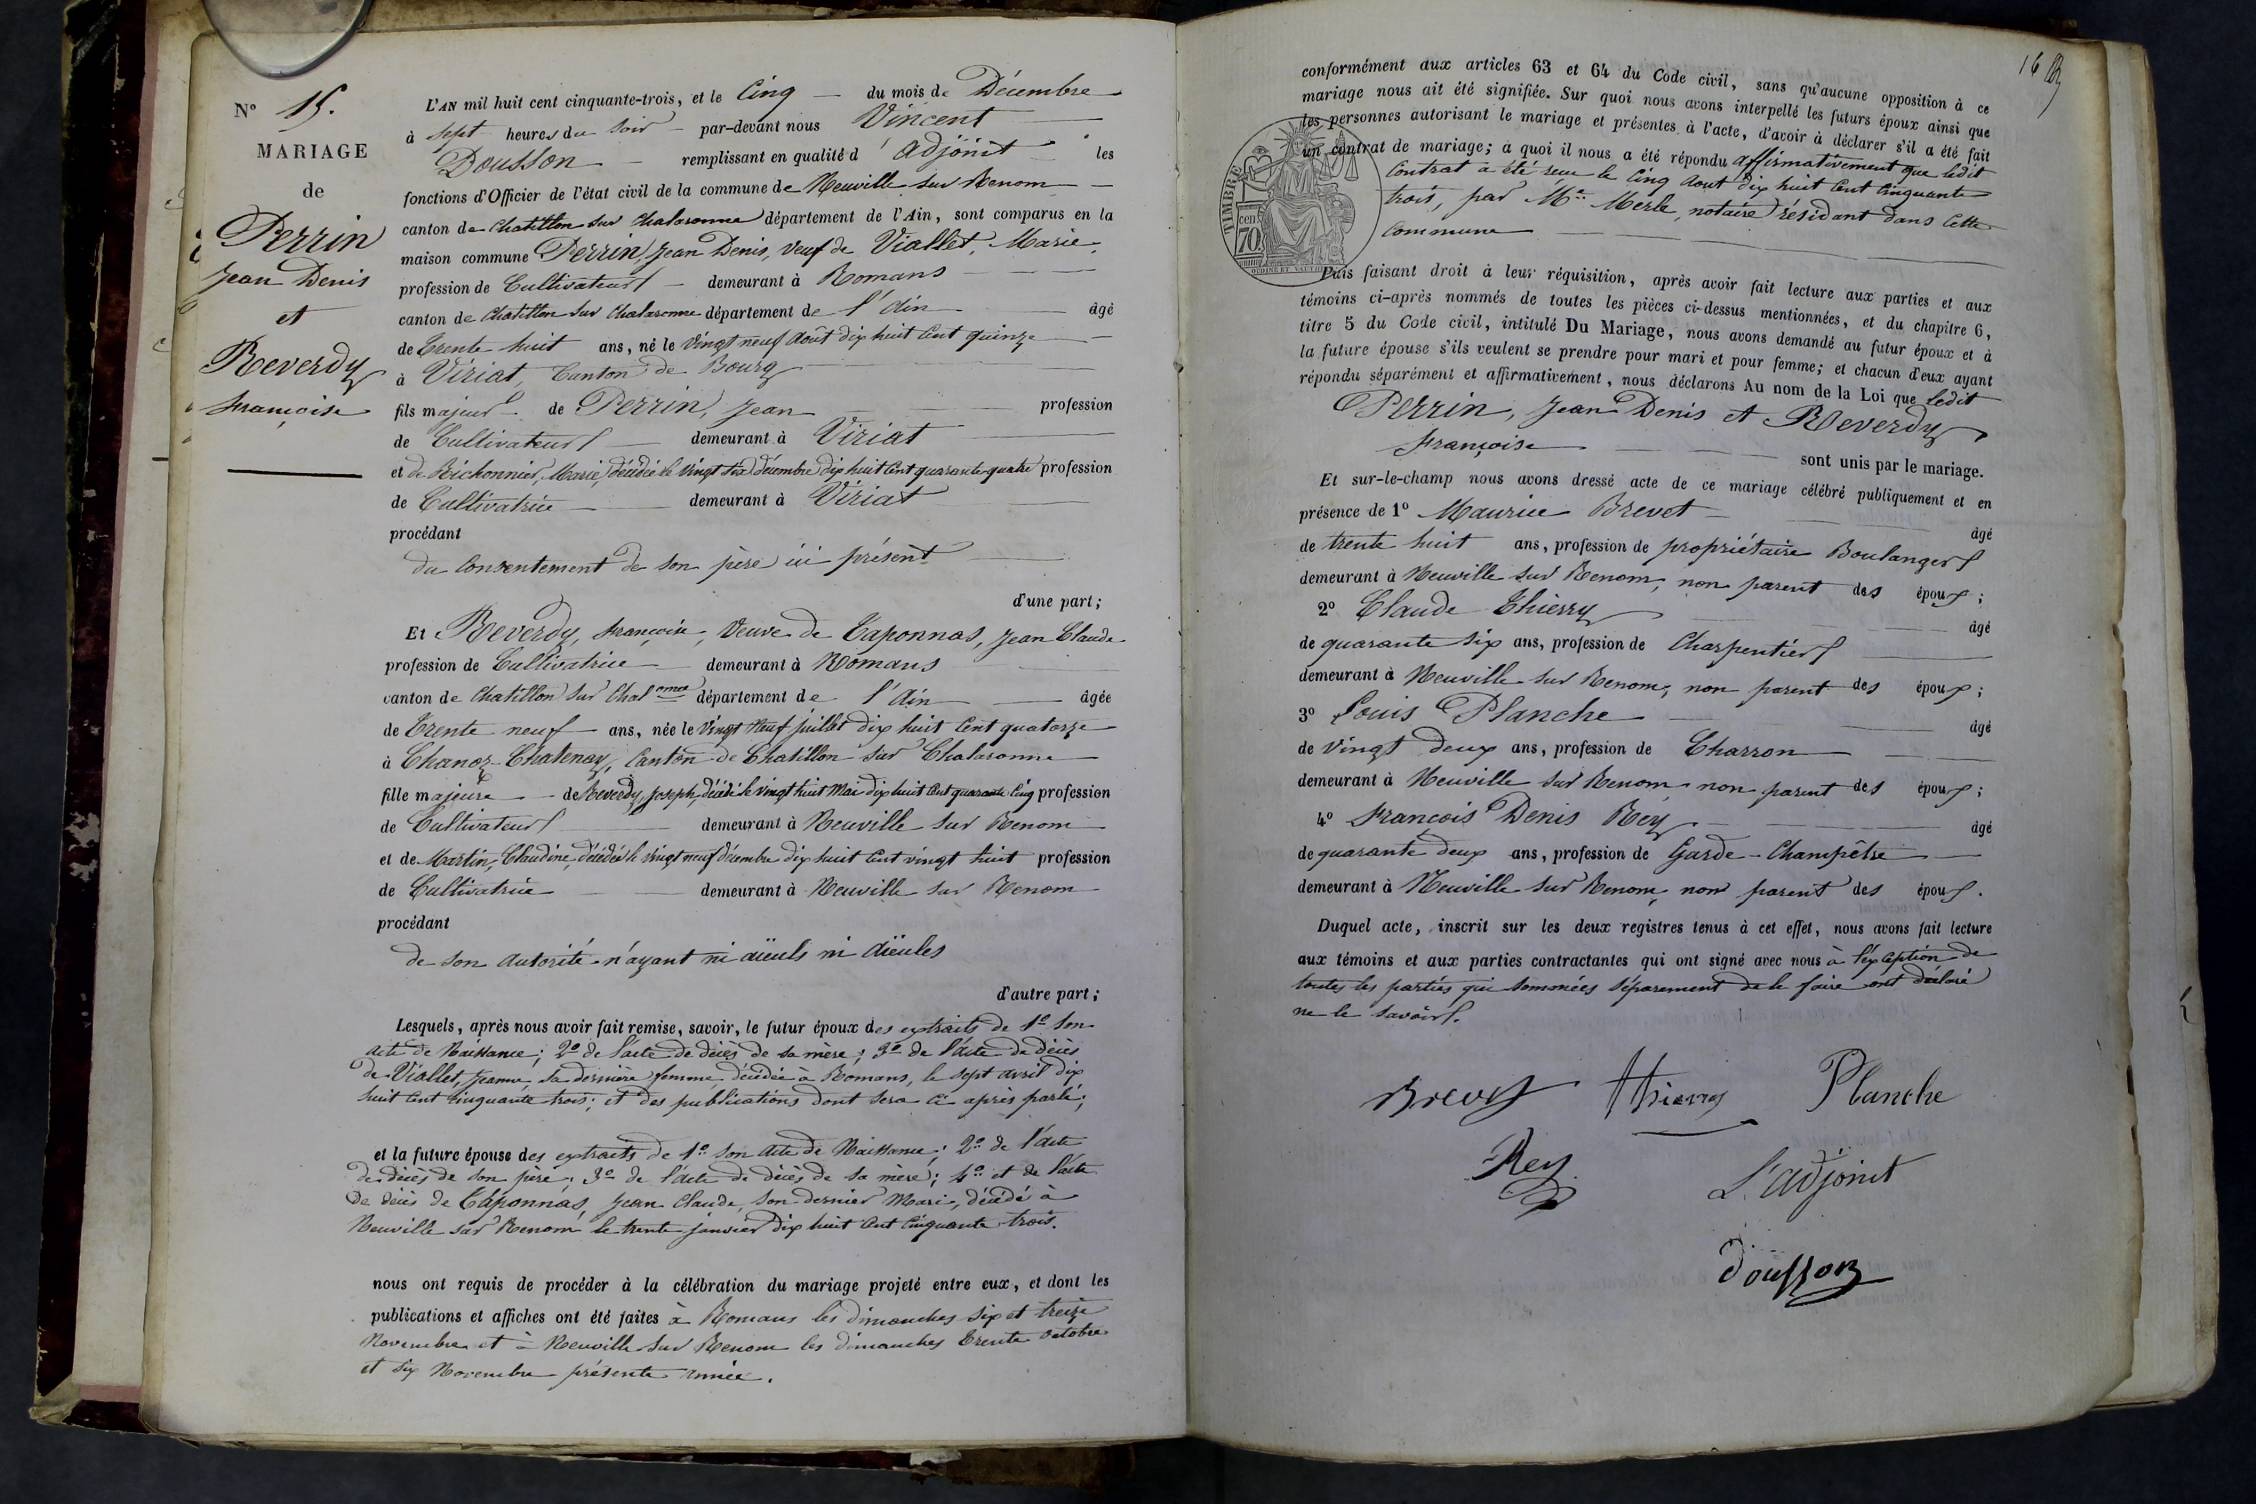 N° 15.
MARIAGE
de
Perrin
Jean Denis
et
Reverdy
françoise
L'AN mil huit cent cinquante-trois, et le Cinq du mois de Décembre
à sept heures du soir par-devant nous Vincent
Dousson remplissant en qualité d'adjoint les
fonctions d'Officier de l'état civil de la commune de Neuville sur Renom
canton de Chatillon sur Chalaronne département de l'Ain, sont comparus en la
maison commune Perrin, Jean Denis, veuf de Viallet, Marie,
profession de Cultivateur demeurant à Romans
canton de Chatillon sur Chalaronne département de l'Ain âgé
de Trente huit ans, né le vingt neuf Août dix huit Cent quinze
à Viriat, Canton de Bourg
fils majeur de Perrin, Jean profession
de Cultivateur demeurant à Viriat
et de Brichonnier, Marie, décédée le vingt six décembre dix huit Cent quarante-quatre profession
de Cultivatrice demeurant à Viriat
procédant
du Consentement de son père ici présent
d'une part;
Et Reverdy, françoise, Veuve de Taponnas, Jean Claude
profession de Cultivatrice demeurant à Romans
canton de Chatillon sur Chal.onne département de l'Ain âgée
de Trente neuf ans, née le Vingt Neuf juillet dix huit Cent quatorze
à Chanoz-Chatenay, Canton de Chatillon sur Chalaronne
fille majeure de Reverdy, Joseph, décédé le vingt huit Mai dix huit Cent quarante Cinq profession
de Cultivateur demeurant à Neuville sur Renom
et de Martin, Claudine, décédée le vingt neuf décembre dix huit Cent vingt huit profession
de Cultivatrice demeurant à Neuville sur Renom
procédant
de son autorité n'ayant ni aïeuls ni aïeules
d'autre part;
Lesquels, après nous avoir fait remise, savoir, le futur époux des extraits de 1° son
acte de Naissance; 2° de l'acte de décès de sa mère; 3° de l'acte de décès
de Viallet, Jeanne, sa dernière femme décédée à Romans, le sept avril dix
huit Cent Cinquante trois; et des publications dont sera ci après parlé;
et la future épouse des extraits de 1° son Acte de Naissance; 2° de l'acte
de décès de son père; 3° de l'acte de décès de sa mère; 4° et de l'acte
de décès de Taponnas, Jean Claude, son dernier Mari, décédé à
Neuville sur Renom le trente janvier dix huit Cent Cinquante trois.
nous ont requis de procéder à la célébration du mariage projeté entre eux, et dont les
publications et affiches ont été faites à Romans les dimanches six et treize
Novembre et à Neuville sur Renom les dimanches trente octobre
et six Novembre présente année.
16
conformément aux articles 63 et 64 du Code civil, sans qu'aucune opposition à ce
mariage nous ait été signifiée. Sur quoi nous avons interpellé les futurs époux ainsi que
les personnes autorisant le mariage et présentes à l'acte, d'avoir à déclarer s'il a été fait
un contrat de mariage; à quoi il nous a été répondu affirmativement que ledit
Contrat a été reçu le Cinq Aout dix huit Cent Cinquante
trois, par Me Merle, notaire résidant dans Cette
Commune
TIMBRE
cen.
70
Puis faisant droit à leur réquisition, après avoir fait lecture aux parties et aux
témoins ci-après nommés de toutes les pièces ci-dessus mentionnées, et du chapitre 6,
titre 5 du Code civil, intitulé Du Mariage, nous avons demandé au futur époux et à
la future épouse s'ils veulent se prendre pour mari et pour femme; et chacun d'eux ayant
répondu séparément et affirmativement, nous déclarons Au nom de la Loi que ledit
Perrin, Jean Denis et Reverdy
françoise
sont unis par le mariage.
Et sur-le-champ nous avons dressé acte de ce mariage célébré publiquement et en
présence de 1° Maurice Brevet âgé
de trente huit ans, profession de propriétaire Boulanger
demeurant à Neuville sur Renom, non parent des époux;
2° Claude Thierry âgé
de quarante six ans, profession de Charpentier
demeurant à Neuville sur Renom, non parent des époux;
3° Louis Planche âgé
de vingt deux ans, profession de Charron
demeurant à Neuville sur Renom non parent des époux;
4° François Denis Rey âgé
de quarante deux ans, profession de Garde-Champêtre
demeurant à Neuville sur Renom, non parent des époux.
Duquel acte, inscrit sur les deux registres tenus à cet effet, nous avons fait lecture
aux témoins et aux parties contractantes qui ont signé avec nous à l'exception de
toutes les parties qui somonées séparement de le faire ont déclaré
ne le savoir.
Brevet Thierry Planche
Rey L'adjoint
Dousson